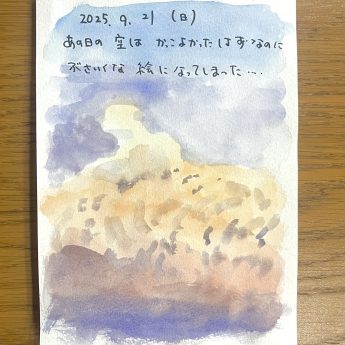 2025. 9. 21 (日)
あの日の 空は かっこよかったはずなのに
不さいくな 絵に なってしまった…